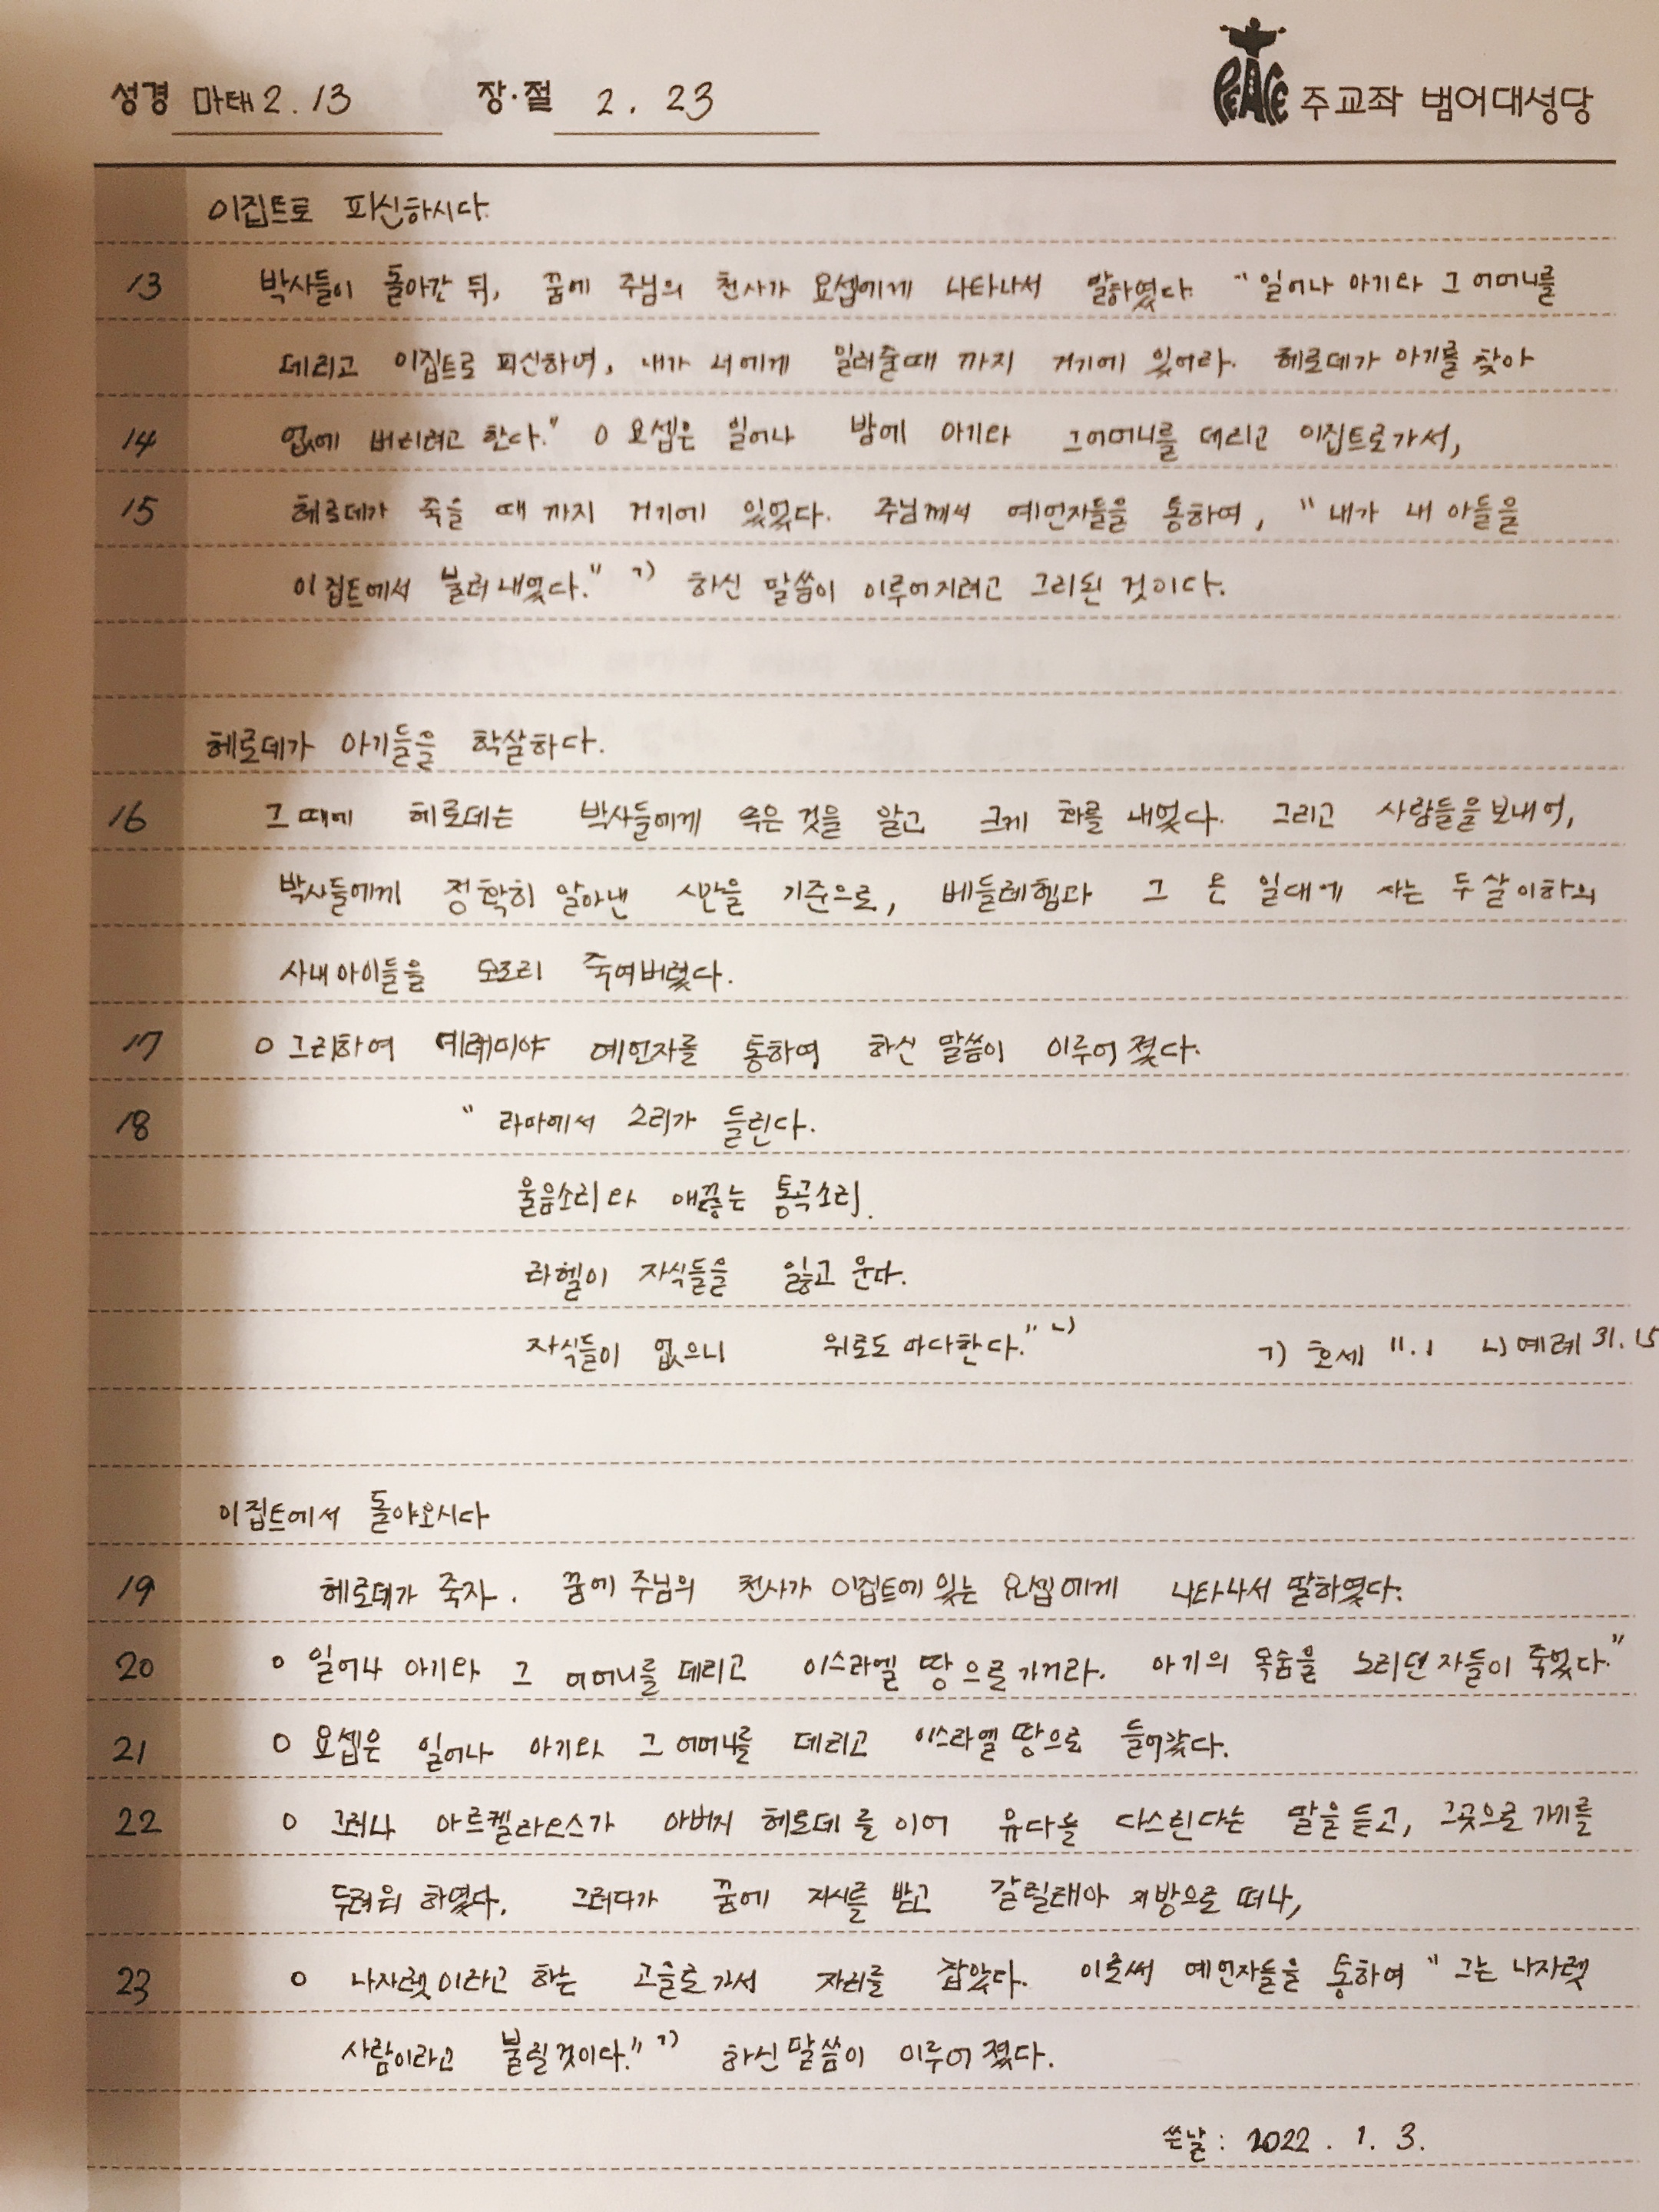 성경 마태 2. 13 장·절 2. 23 PEACE 주교좌 범어대성당
이집트로 피신하시다.
13 박사들이 돌아간 뒤, 꿈에 주님의 천사가 요셉에게 나타나서 말하였다. “일어나 아기와 그 어머니를
데리고 이집트로 피신하여, 내가 너에게 일러줄때 까지 거기에 있어라. 헤로데가 아기를 찾아
14 없애 버리려고 한다.” ○ 요셉은 일어나 밤에 아기와 그어머니를 데리고 이집트로가서,
15 헤로데가 죽을 때 까지 거기에 있었다. 주님께서 예언자들을 통하여, “내가 내 아들을
이집트에서 불러내었다.” ㄱ) 하신 말씀이 이루어지려고 그리된 것이다.
헤로데가 아기들을 학살하다.
16 그 때에 헤로데는 박사들에게 속은 것을 알고 크게 화를 내었다. 그리고 사람들을 보내어,
박사들에게 정확히 알아낸 시간을 기준으로, 베들레헴과 그 온 일대에 사는 두살이하의
사내아이들을 모조리 죽여버렸다.
17 ○ 그리하여 예레미야 예언자를 통하여 하신 말씀이 이루어 졌다.
18 “라마에서 소리가 들린다.
울음소리와 애끓는 통곡소리.
라헬이 자식들을 잃고 운다.
자식들이 없으니 위로도 마다한다.” ㄴ) ㄱ) 호세 11.1 ㄴ) 예레 31.15
이집트에서 돌아오시다
19 헤로데가 죽자. 꿈에 주님의 천사가 이집트에 있는 요셉에게 나타나서 말하였다:
20 ○ 일어나 아기와 그 어머니를 데리고 이스라엘 땅으로가거라. 아기의 목숨을 노리던 자들이 죽었다.”
21 ○ 요셉은 일어나 아기와 그 어머니를 데리고 이스라엘 땅으로 들어갔다.
22 ○ 그러나 아르켈라오스가 아버지 헤로데를 이어 유다를 다스린다는 말을 듣고, 그곳으로 가기를
두려워 하였다. 그러다가 꿈에 지시를 받고 갈릴래아 지방으로 떠나,
23 ○ 나자렛이라고 하는 고을로가서 자리를 잡았다. 이로써 예언자들을 통하여 “그는 나자렛
사람이라고 불릴것이다.” ㄱ) 하신 말씀이 이루어 졌다.
쓴날 : 2022. 1. 3.